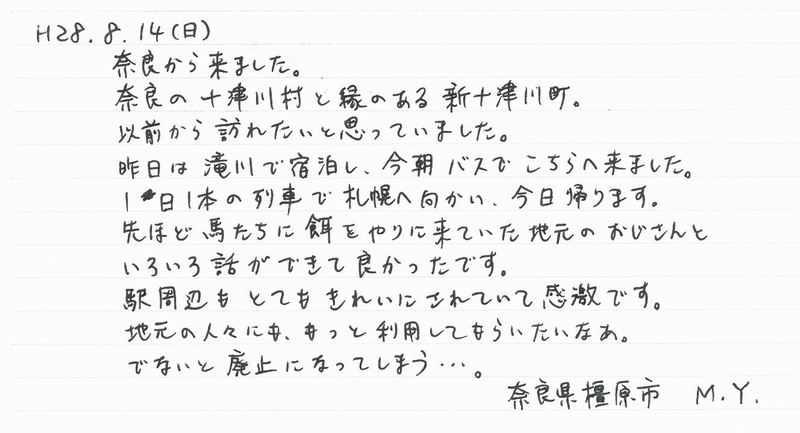 H28.8.14(日)
奈良から来ました。
奈良の十津川村と縁のある新十津川町。
以前から訪れたいと思っていました。
昨日は滝川で宿泊し、今朝バスでこちらへ来ました。
1日1本の列車で札幌へ向かい、今日帰ります。
先ほど馬たちに餌をやりに来ていた地元のおじさんと
いろいろ話ができて良かったです。
駅周辺もとてもきれいにされていて感激です。
地元の人々にも、もっと利用してもらいたいなあ。
でないと廃止になってしまう…。
奈良県橿原市 M.Y.